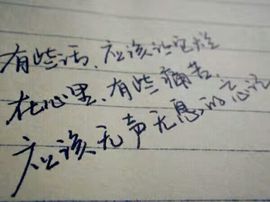 有些话，应该让它烂
在心里，有些痛苦，
应该无声无息的忘记